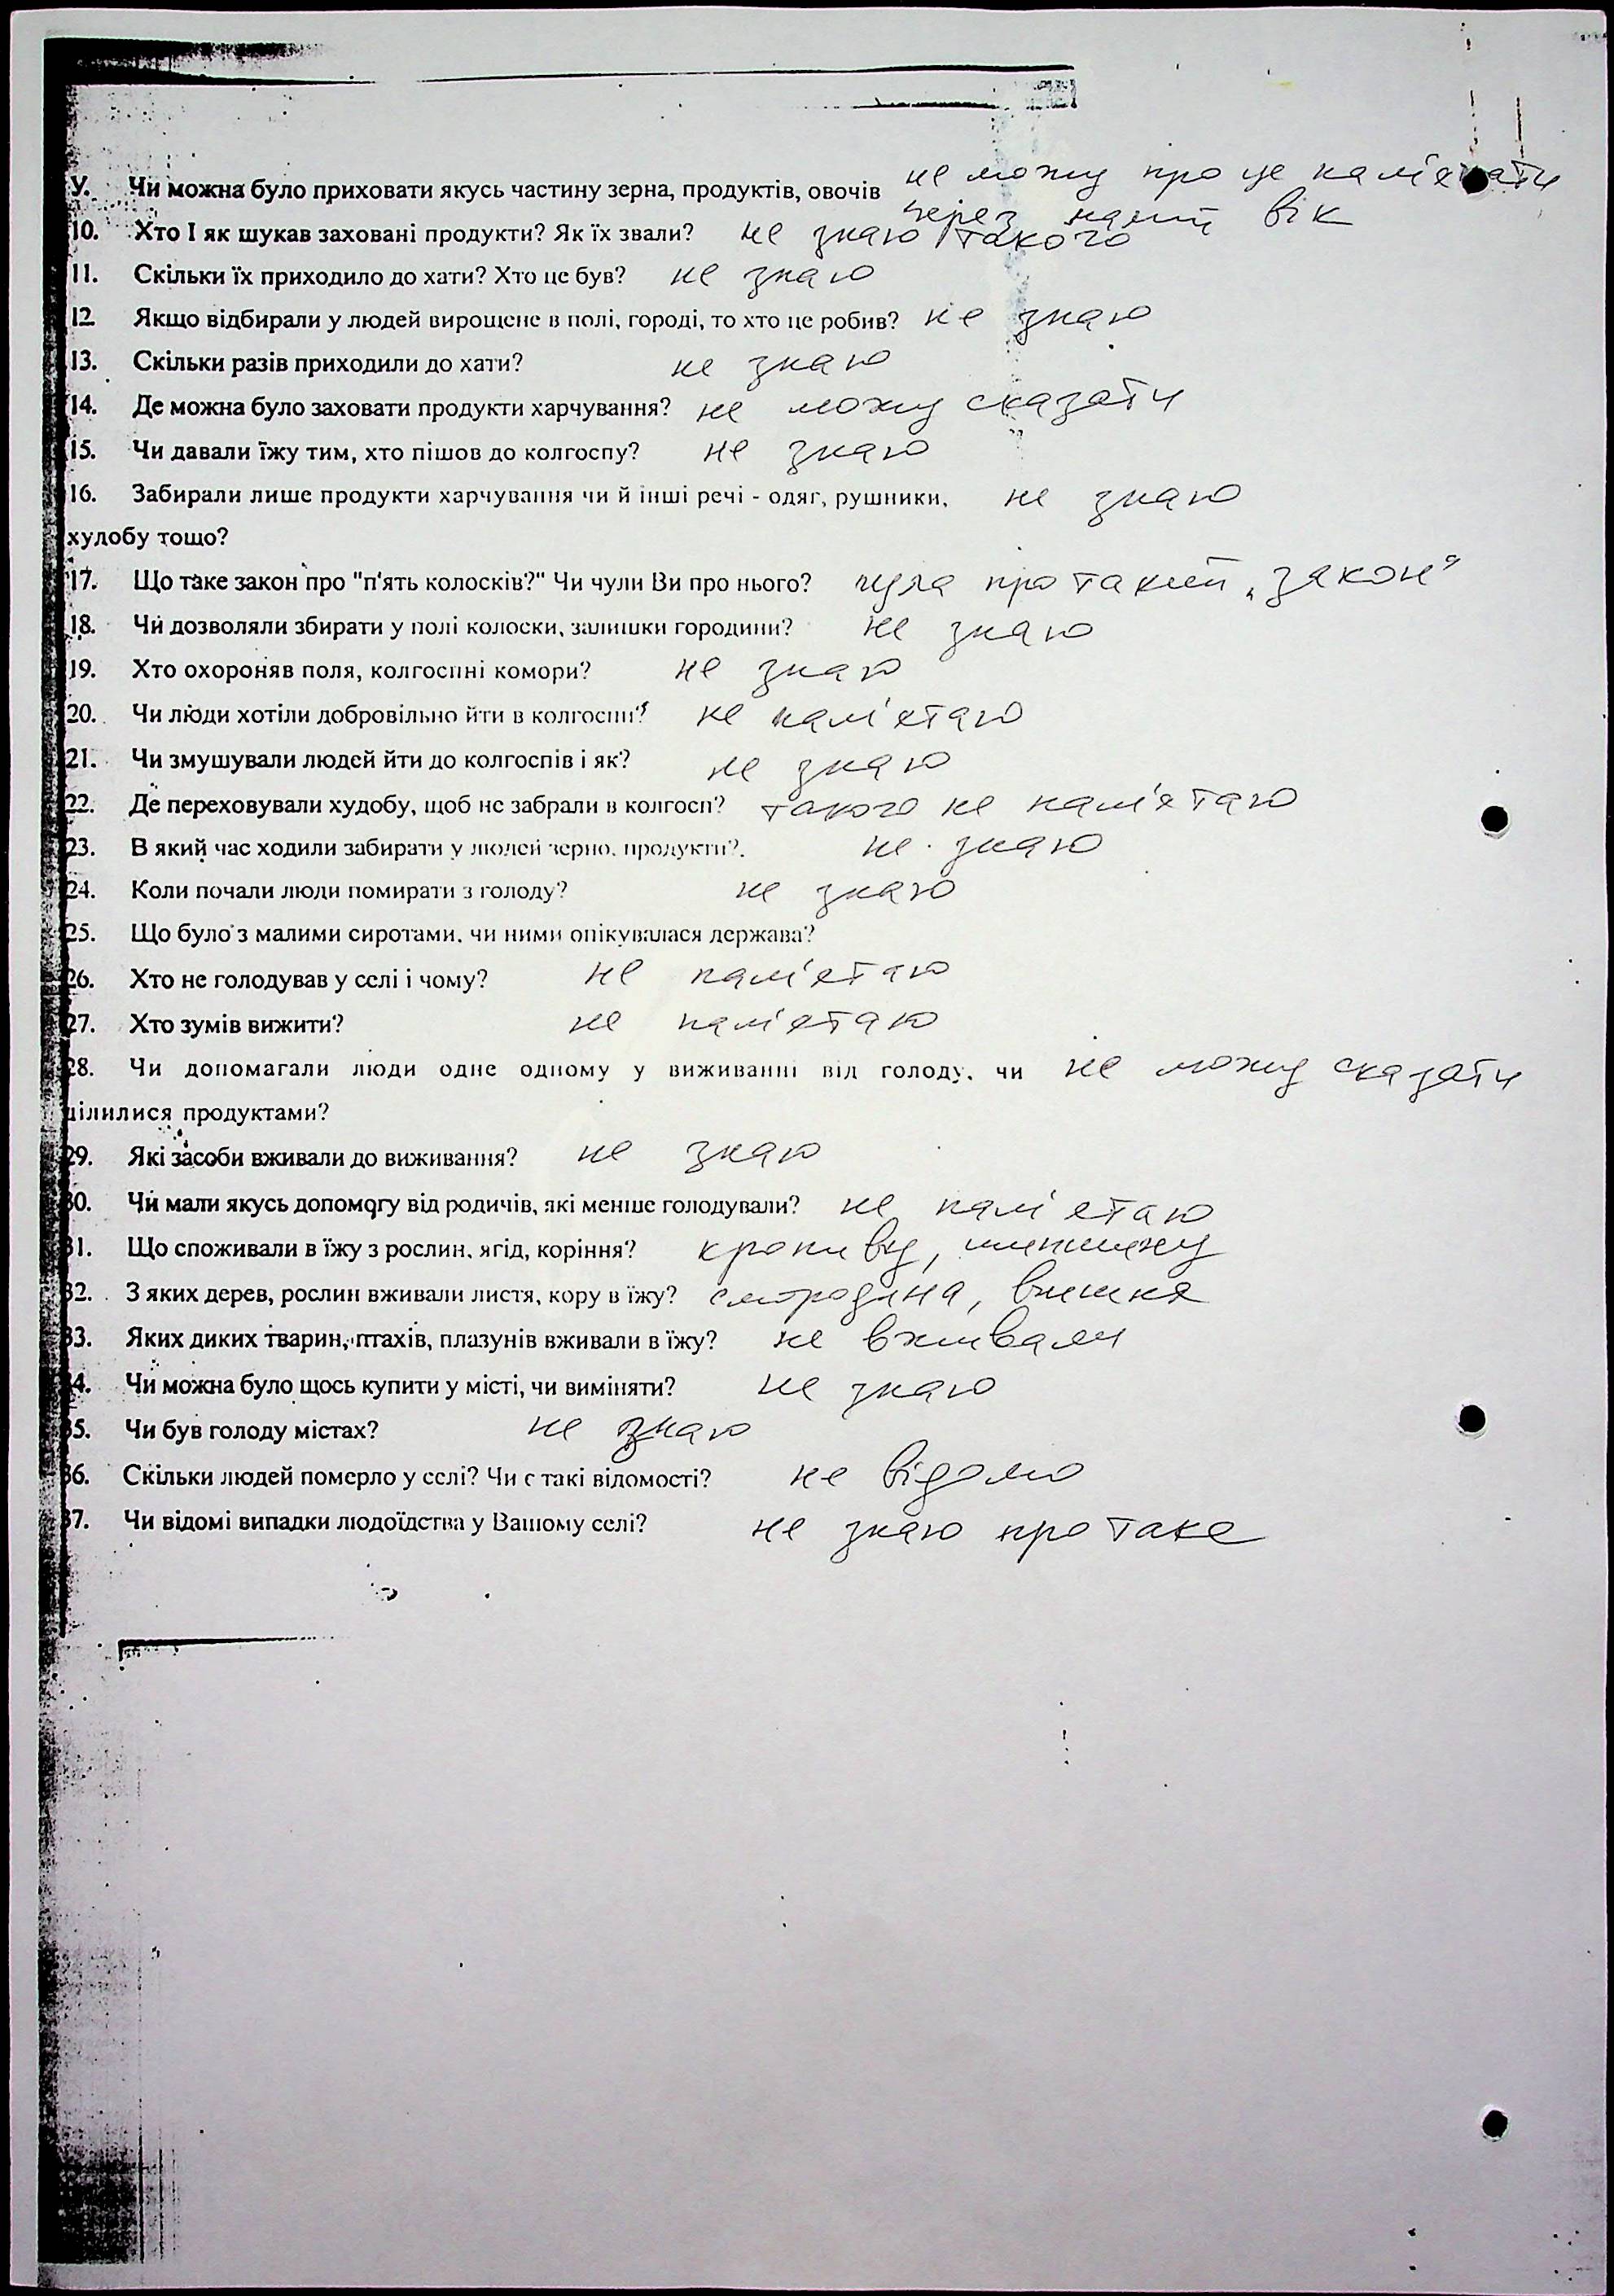 9. Чи можна було приховати якусь частину зерна, продуктів, овочів не можу про це пам'ятати
через малий вік
10. Хто І як шукав заховані продукти? Як їх звали? не знаю такого
11. Скільки їх приходило до хати? Хто це був? не знаю
12. Якщо відбирали у людей вирощене в полі, городі, то хто це робив? не знаю
13. Скільки разів приходили до хати? не знаю
14. Де можна було заховати продукти харчування? не можу сказати
15. Чи давали їжу тим, хто пішов до колгоспу? не знаю
16. Забирали лише продукти харчування чи й інші речі - одяг, рушники, не знаю
худобу тощо?
17. Що таке закон про "п'ять колосків?" Чи чули Ви про нього? чула про такий „закон"
18. Чи дозволяли збирати у полі колоски, залишки городини? не знаю
19. Хто охороняв поля, колгоспні комори? не знаю
20. Чи люди хотіли добровільно йти в колгоспи? не пам'ятаю
21. Чи змушували людей йти до колгоспів і як? не знаю
22. Де переховували худобу, щоб не забрали в колгосп? такого не пам'ятаю
23. В який час ходили забирати у людей зерно, продукти?. не знаю
24. Коли почали люди помирати з голоду? не знаю
25. Що було з малими сиротами, чи ними опікувалася держава?
26. Хто не голодував у селі і чому? не пам'ятаю
27. Хто зумів вижити? не пам'ятаю
28. Чи допомагали люди одне одному у виживанні від голоду, чи не можу сказати
ділилися продуктами?
29. Які засоби вживали до виживання? не знаю
30. Чи мали якусь допомогу від родичів, які менше голодували? не пам'ятаю
31. Що споживали в їжу з рослин, ягід, коріння? кропиву, шипшину
32. З яких дерев, рослин вживали листя, кору в їжу? смородина, вишня
33. Яких диких тварин, птахів, плазунів вживали в їжу? не вживали
34. Чи можна було щось купити у місті, чи виміняти? не знаю
35. Чи був голоду містах? не знаю
36. Скільки людей померло у селі? Чи є такі відомості? не відомо
37. Чи відомі випадки людоїдства у Вашому селі? не знаю про таке